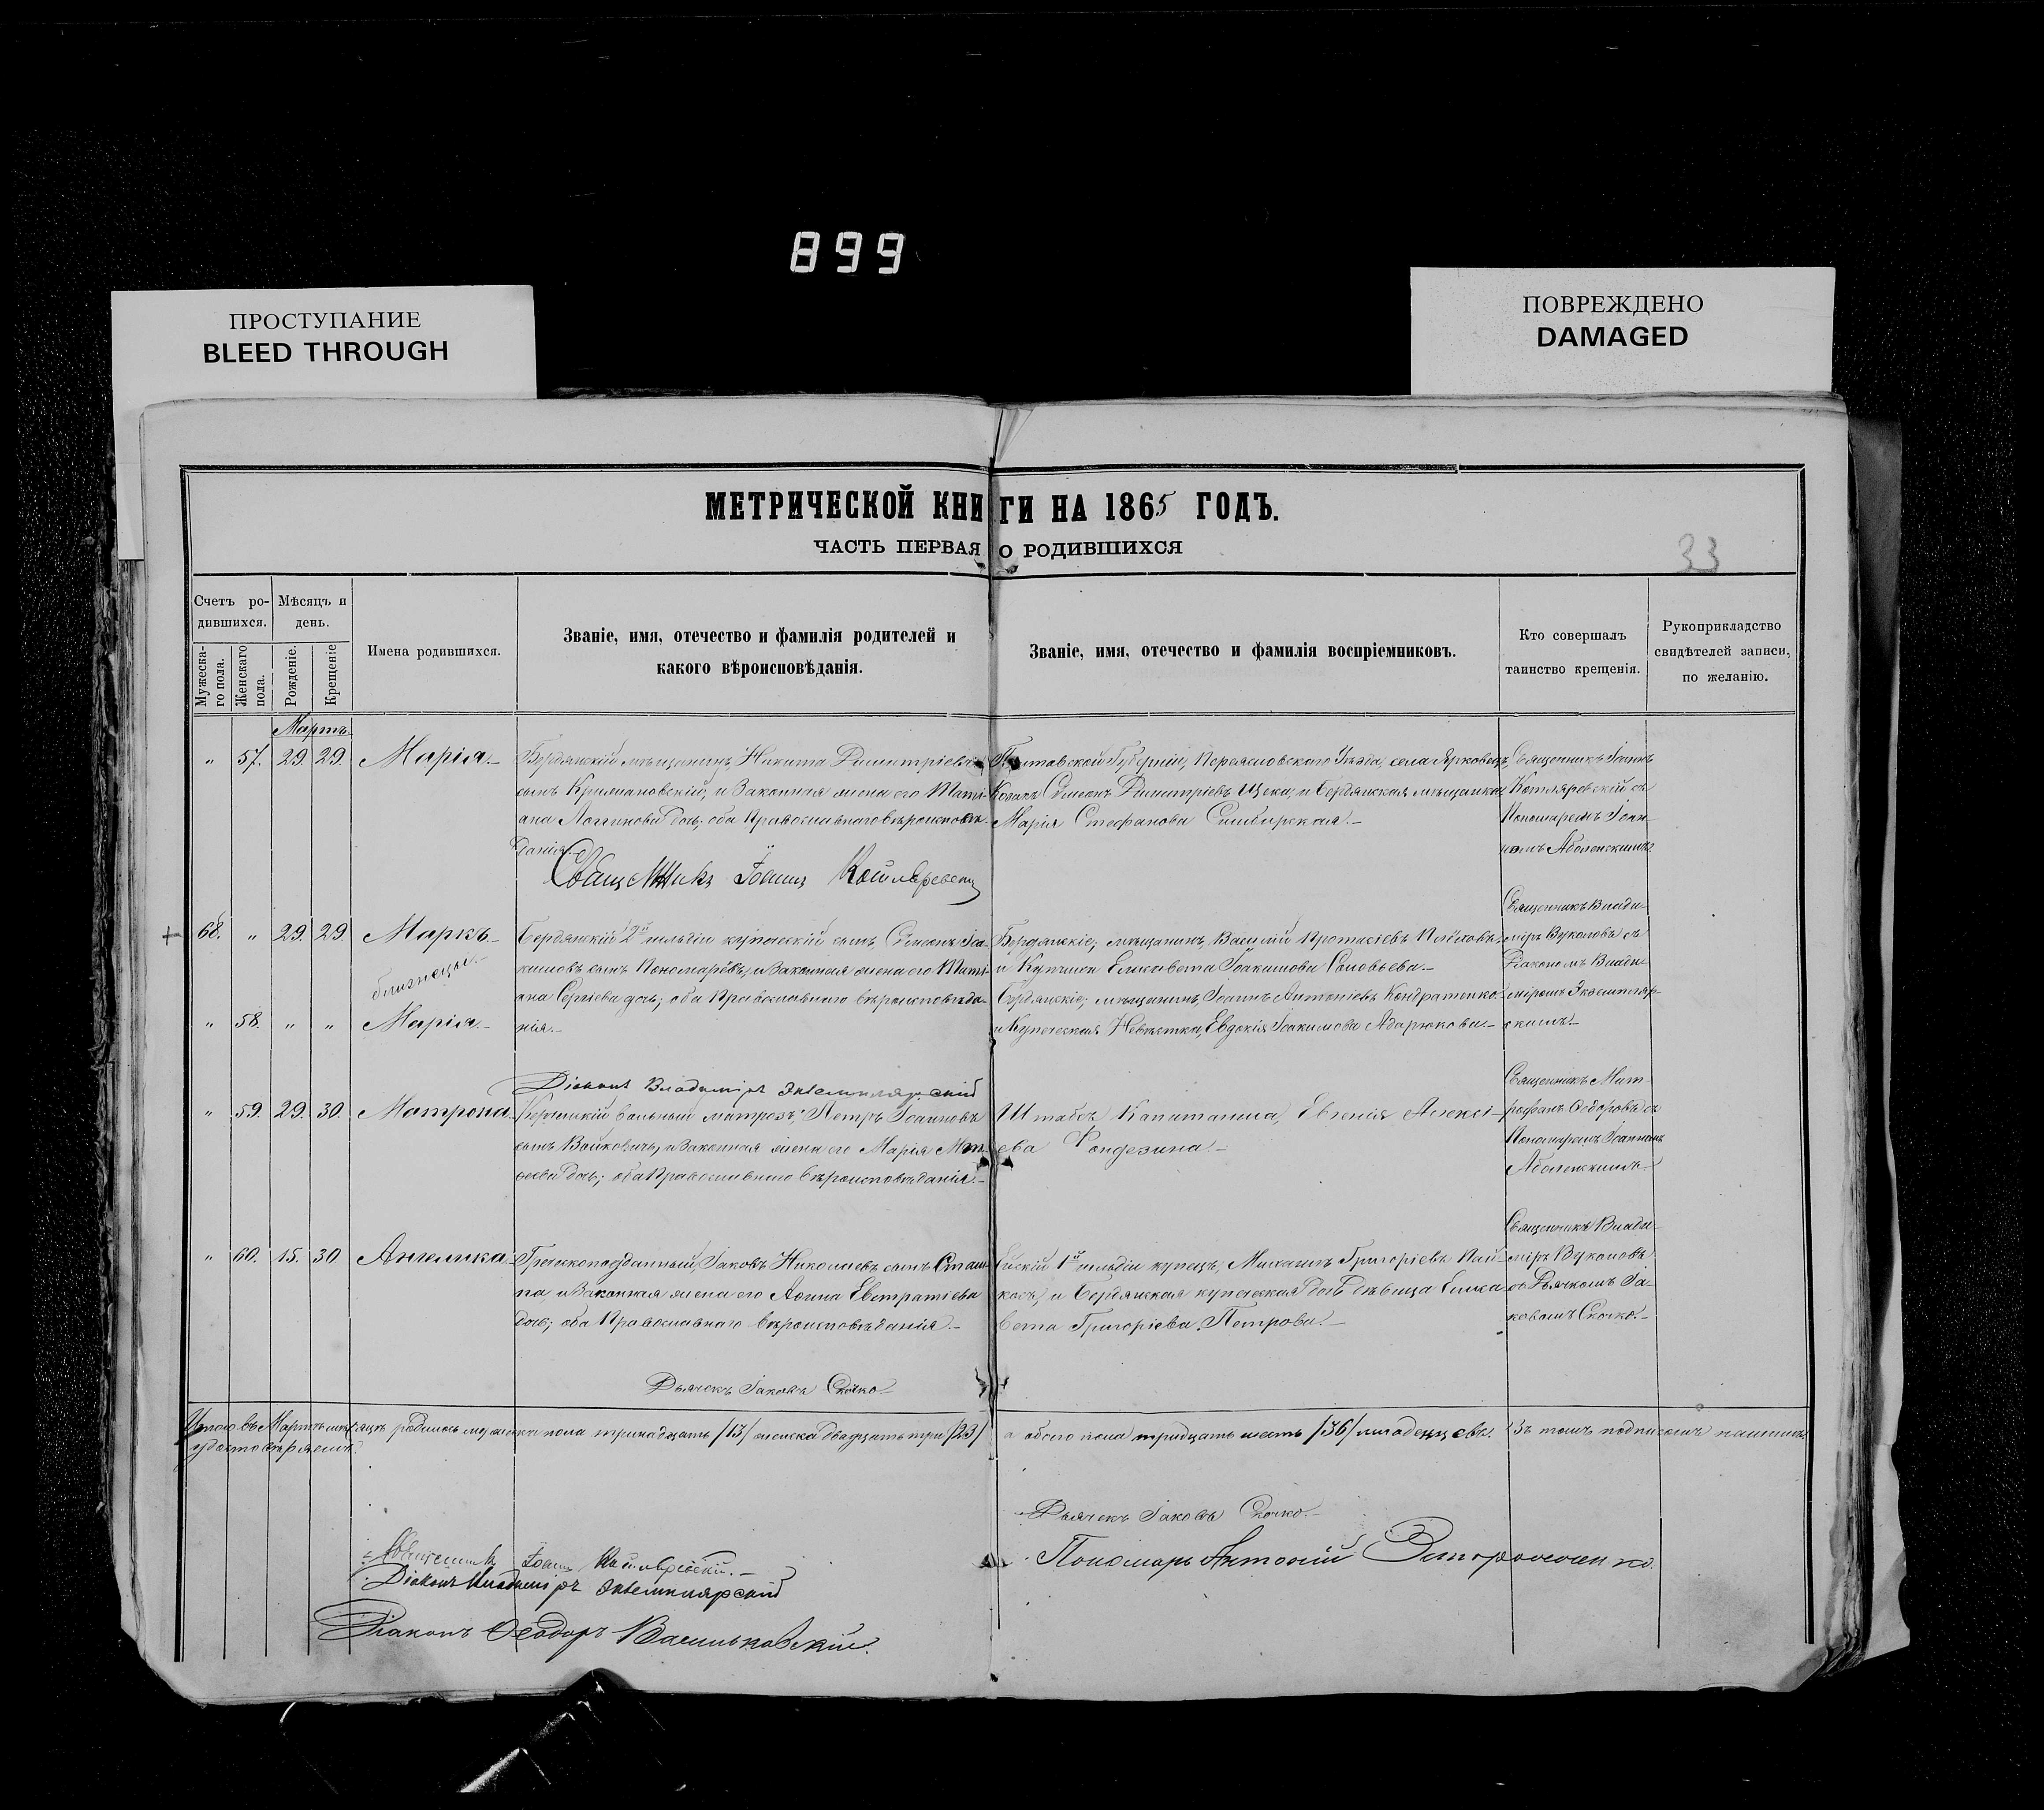 899
ПРОСТУПАНИЕ
BLEED THROUGH
ПОВРЕЖДЕНО
DAMAGED
МЕТРИЧЕСКОЙ КНИГИ НА 1865 ГОДЪ.
ЧАСТЬ ПЕРВАЯ О РОДИВШИХСЯ
33
Счетъ ро-
дившихся.
Мѣсяцъ и
день.
Мужеска-
го пола.
Женскаго
пола.
Рожденіе.
Крещеніе
Имена родившихся.
Званіе, имя, отечество и фамилія родителей и
какого вѣроисповѣданія.
Званіе, имя, отечество и фамилія воспріемниковъ.
Кто совершалъ
таинство крещенія.
Рукоприкладство
свидѣтелей записи,
по желанію.
Мартъ
" 57. 29. 29. Марія.
Бердянскій мѣщанинъ, Никита Димитріевъ
сынъ Крижановскій, и Законная жена его Тати-
ана Логгинова дочь; оба Православнаго вѣроисповѣ-
данія.
Священникъ Іоаннъ Котляревскій
Полтавской Губерніи, Переясловскаго Уѣзда, села Ярковецъ,
Козакъ Симеонъ Димитріевъ Щека, и Бердянская мѣщанка
Марія Стефанова Симбирская.
Священникъ Іоаннъ
Котляревскій съ
Пономаремъ Іоан-
номъ Аболенскимъ
68. " 29. 29. Маркъ
близнецы
" 58. " " Марія.
Бердянскій 2й гильдіи купеческій сынъ, Симеонъ Іоа-
кимовъ сынъ Пономарёвъ, и Законная жена его Тати-
ана Сергіева дочь; оба Православнаго вѣроисповѣда-
нія.
Діаконъ Владиміръ Экземплярскій
Бердянскіе; мѣщанинъ, Василій Протасіевъ
и Купчиха Елисавета Іоакимова Соловьева.
Бердянскіе; мѣщанинъ, Іоаннъ Антоніевъ Кондратенко
и Купеческая Невѣстка, Евдокія Іоакимова Адарюкова
Священникъ Влади-
міръ Вуколовъ съ
Діакономъ Влади-
міромъ Экземпляр-
скимъ.
" 59. 29. 30. Матрона
вольный матрозъ, Петръ Іоанновъ
сынъ Войковичъ, и Законная жена его Марія Мат-
ѳеева дочь; оба Православнаго вѣроисповѣданія.
Штабсъ Капитанша, Евгенія Алексі-
ева Фондезина.
Священникъ Мит-
рофанъ Ѳедоровъ съ
Пономаремъ Іоанномъ
Аболенскимъ
" 60. 15. 30. Ангелика
Греческоподданный, Іаковъ Николаевъ сынъ
и Законная жена его Аѳина Евстратіева
дочь; оба Православнаго вѣроисповѣданія.
Дьячекъ Іаковъ Скочко
Ейскій 1й гильдіи купецъ, Михаилъ Григоріевъ
и Бердянская купеческая дочь дѣвица Елиса-
вета Григоріева Петрова.
Священникъ Влади-
міръ Вуколовъ
съ Дьячкомъ Іа-
ковомъ Скочко.
Итого въ Мартѣ мѣсяцѣ родилось мужеска пола тринадцать /13/ женска двадцать три /23/ а обоего пола тридцать шесть /36/ младенцевъ. Въ томъ подписомъ нашимъ
удостовѣряемъ.
Священникъ Іоаннъ Котляревскій.
Діаконъ Владиміръ Экземплярскій
Діаконъ Ѳеодоръ Васильковскій.
Дьячекъ Іаковъ Скочко.
Пономарь Антоній